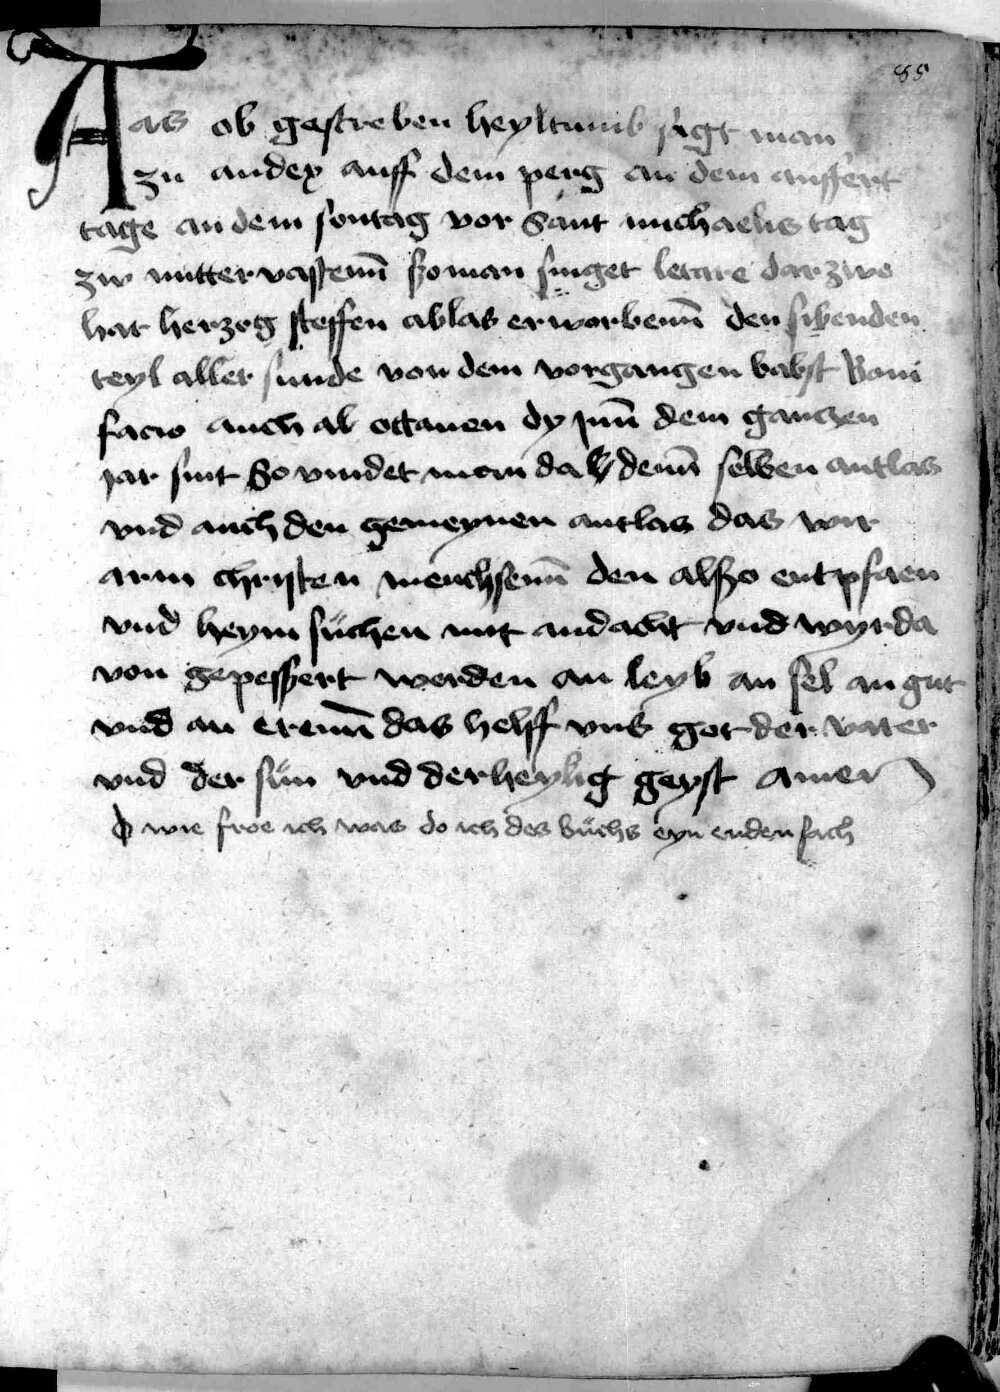 85
Das ob gestreben heyltumb sigt man
zu andex auff dem perg an dem auffert
tage an dem sontag vor Sant michaelis tag
zw mitter vastenn̄ ßo man singet letare dar zwo
hat herzog steffen ablas erworbenn̄ den sibenden
teyl aller sunde von dem vorgangen babst Boni
facio auch al octauen dy jnn̄ dem ganczen
jar sint So vindet man da denn̄ selben antlas
vnd auch den gemeynen antlas das wir
arm christen menchsenn̄ den alßo entpfaen
vnd heym suͤchen mit andacht vnd wyr da
von gepessert werden an leyb an sel an gut
vnd an erenn̄ das helff vns got der vater
vnd der suͤn vnd der heylig geyst Amen
O wie froe ich was do ich des buͤchs eyn enden sach